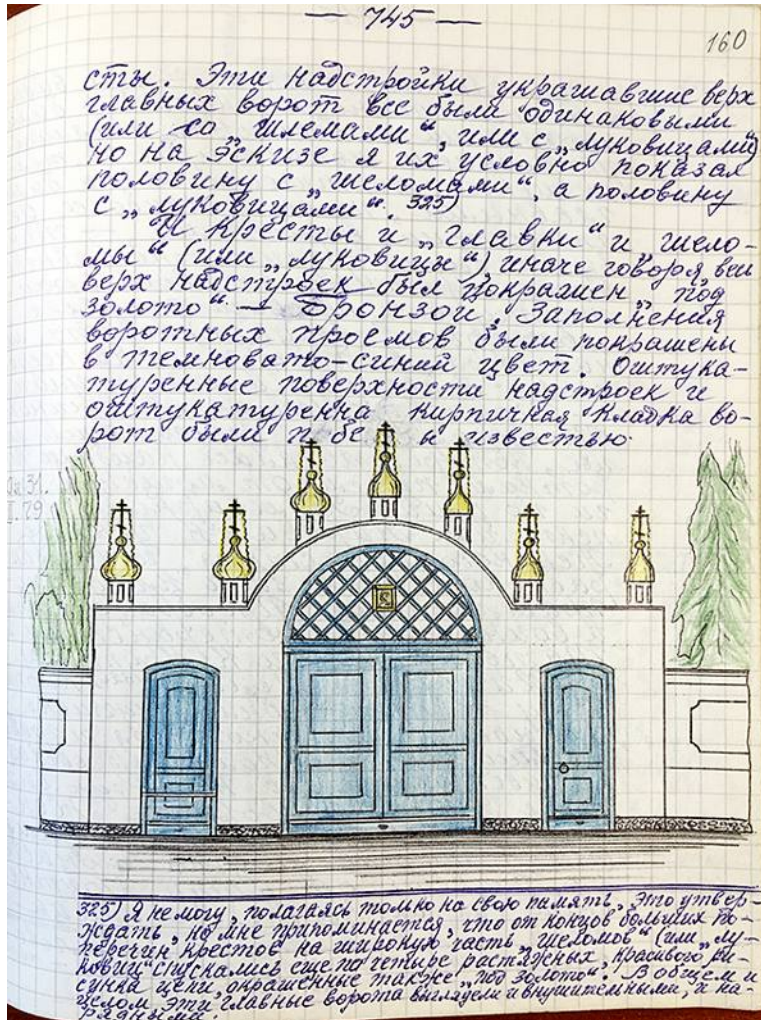 — 745 —
160
сты. Эти надстройки украшавшие верх
главных ворот все были одинаковыми
(или со „шлемами“, или с „луковицами“)
но на эскизе я их условно показал
половину с „шеломами“, а половину
с „луковицами“. 325)
И кресты и „главки“ и шело-
мы“ (или „луковицы“), иначе говоря весь
верх надстроек был покрашен „под
золото“ — бронзой. Заполнения
воротных проемов были покрашены
в темновато-синий цвет. Оштука-
туренные поверхности надстроек и
оштукатуренна кирпичная кладка во-
рот были известью.
31.
79
325) Я не могу, полагаясь только на свою память, это утвер-
ждать, но мне припоминается, что от концов больших по-
перечин крестов на широкую часть „шеломов“ (или „лу-
ковиц“ спускались еще по четыре растяжных, красивого ри-
сунка цепи, окрашенные также „под золото“. В общем и
целом эти главные ворота выглядели и внушительными, и на-
рядными.